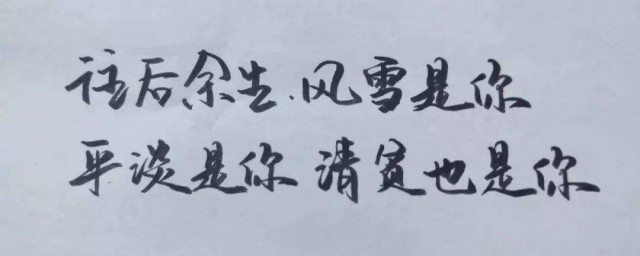 往后余生、风雪是你
平淡是你 清贫也是你